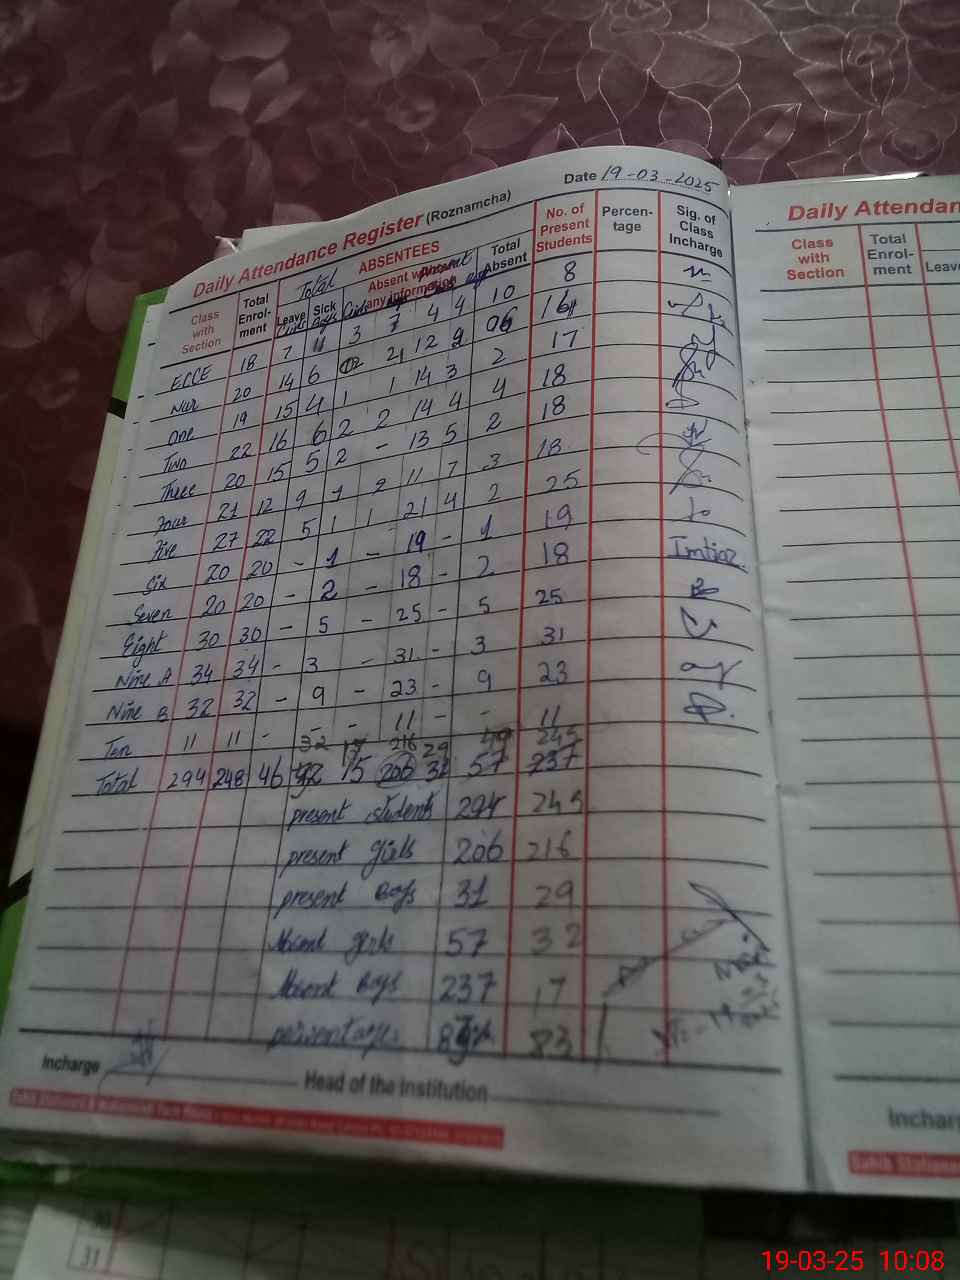 Date 19-03-2025
Daily Attendance Register (Roznamcha)
Class with Section Total Enrol-ment Total ABSENTEES No. of Present Students Percen-tage Sig. of Class Incharge
Leave Sick Absent any information Total Absent
Girls Boys Girls
ECCE 18 7 11 3 7 4 4 10 8
Nur 20 14 6 2 12 2 06
One 19 15 4 1 1 14 3 2 17
Two 22 16 6 2 2 14 4 4 18
Three 20 15 5 2 - 13 5 2 18
Four 21 12 9 1 2 11 7 3 18
Five 27 22 5 1 1 21 4 2 25
Six 20 20 - 1 - 19 - 1 19
Seven 20 20 - 2 - 18 - 2 18 Imtiaz.
Eight 30 30 - 5 - 25 - 5 25
Nine A 34 34 - 3 - 31 - 3 31
Nine B 32 32 - 9 - 23 - 9 23
Ten 11 11 - - - 11 - - 11
32 17 216 29 245
Total 294 248 46 15 206 31 57 237
present students 294 245
present girls 206 216
present Boys 31 29
Absent girls 57 32
Absent Boys 237 17
83
Incharge
Head of the Institution
Daily Attendan
Class with Section Total Enrol-ment Leave
Incharg
31
19-03-25 10:08